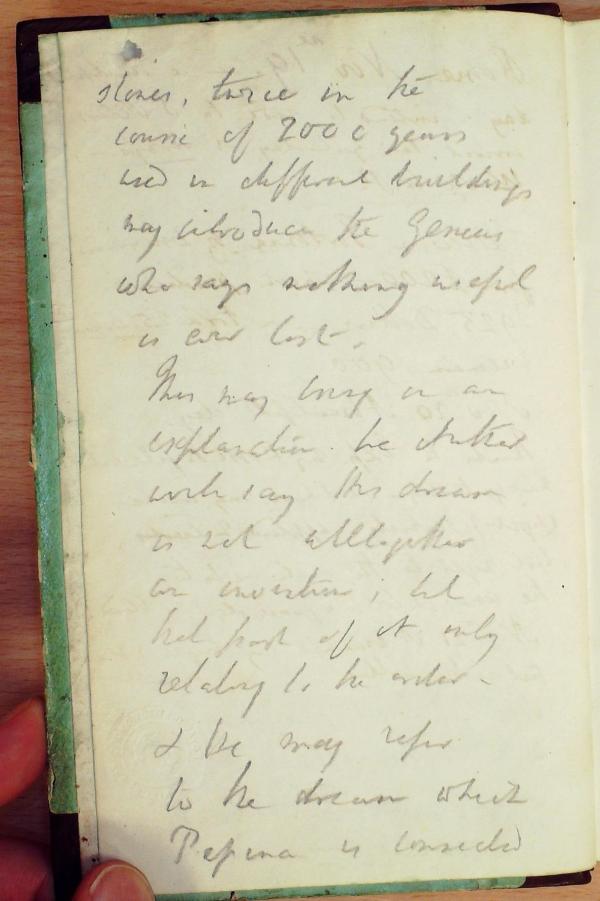 stones, twice in the
course of 2000 years
used in different buildings
may introduce the Genius
who says nothing useful
is ever lost.
This may bring in an
explanation. The Author
will say this dream
is not alltogether
an invention, but
that part of it only
relating to the order -
& he may refer
to the dream which
Pepina is connected